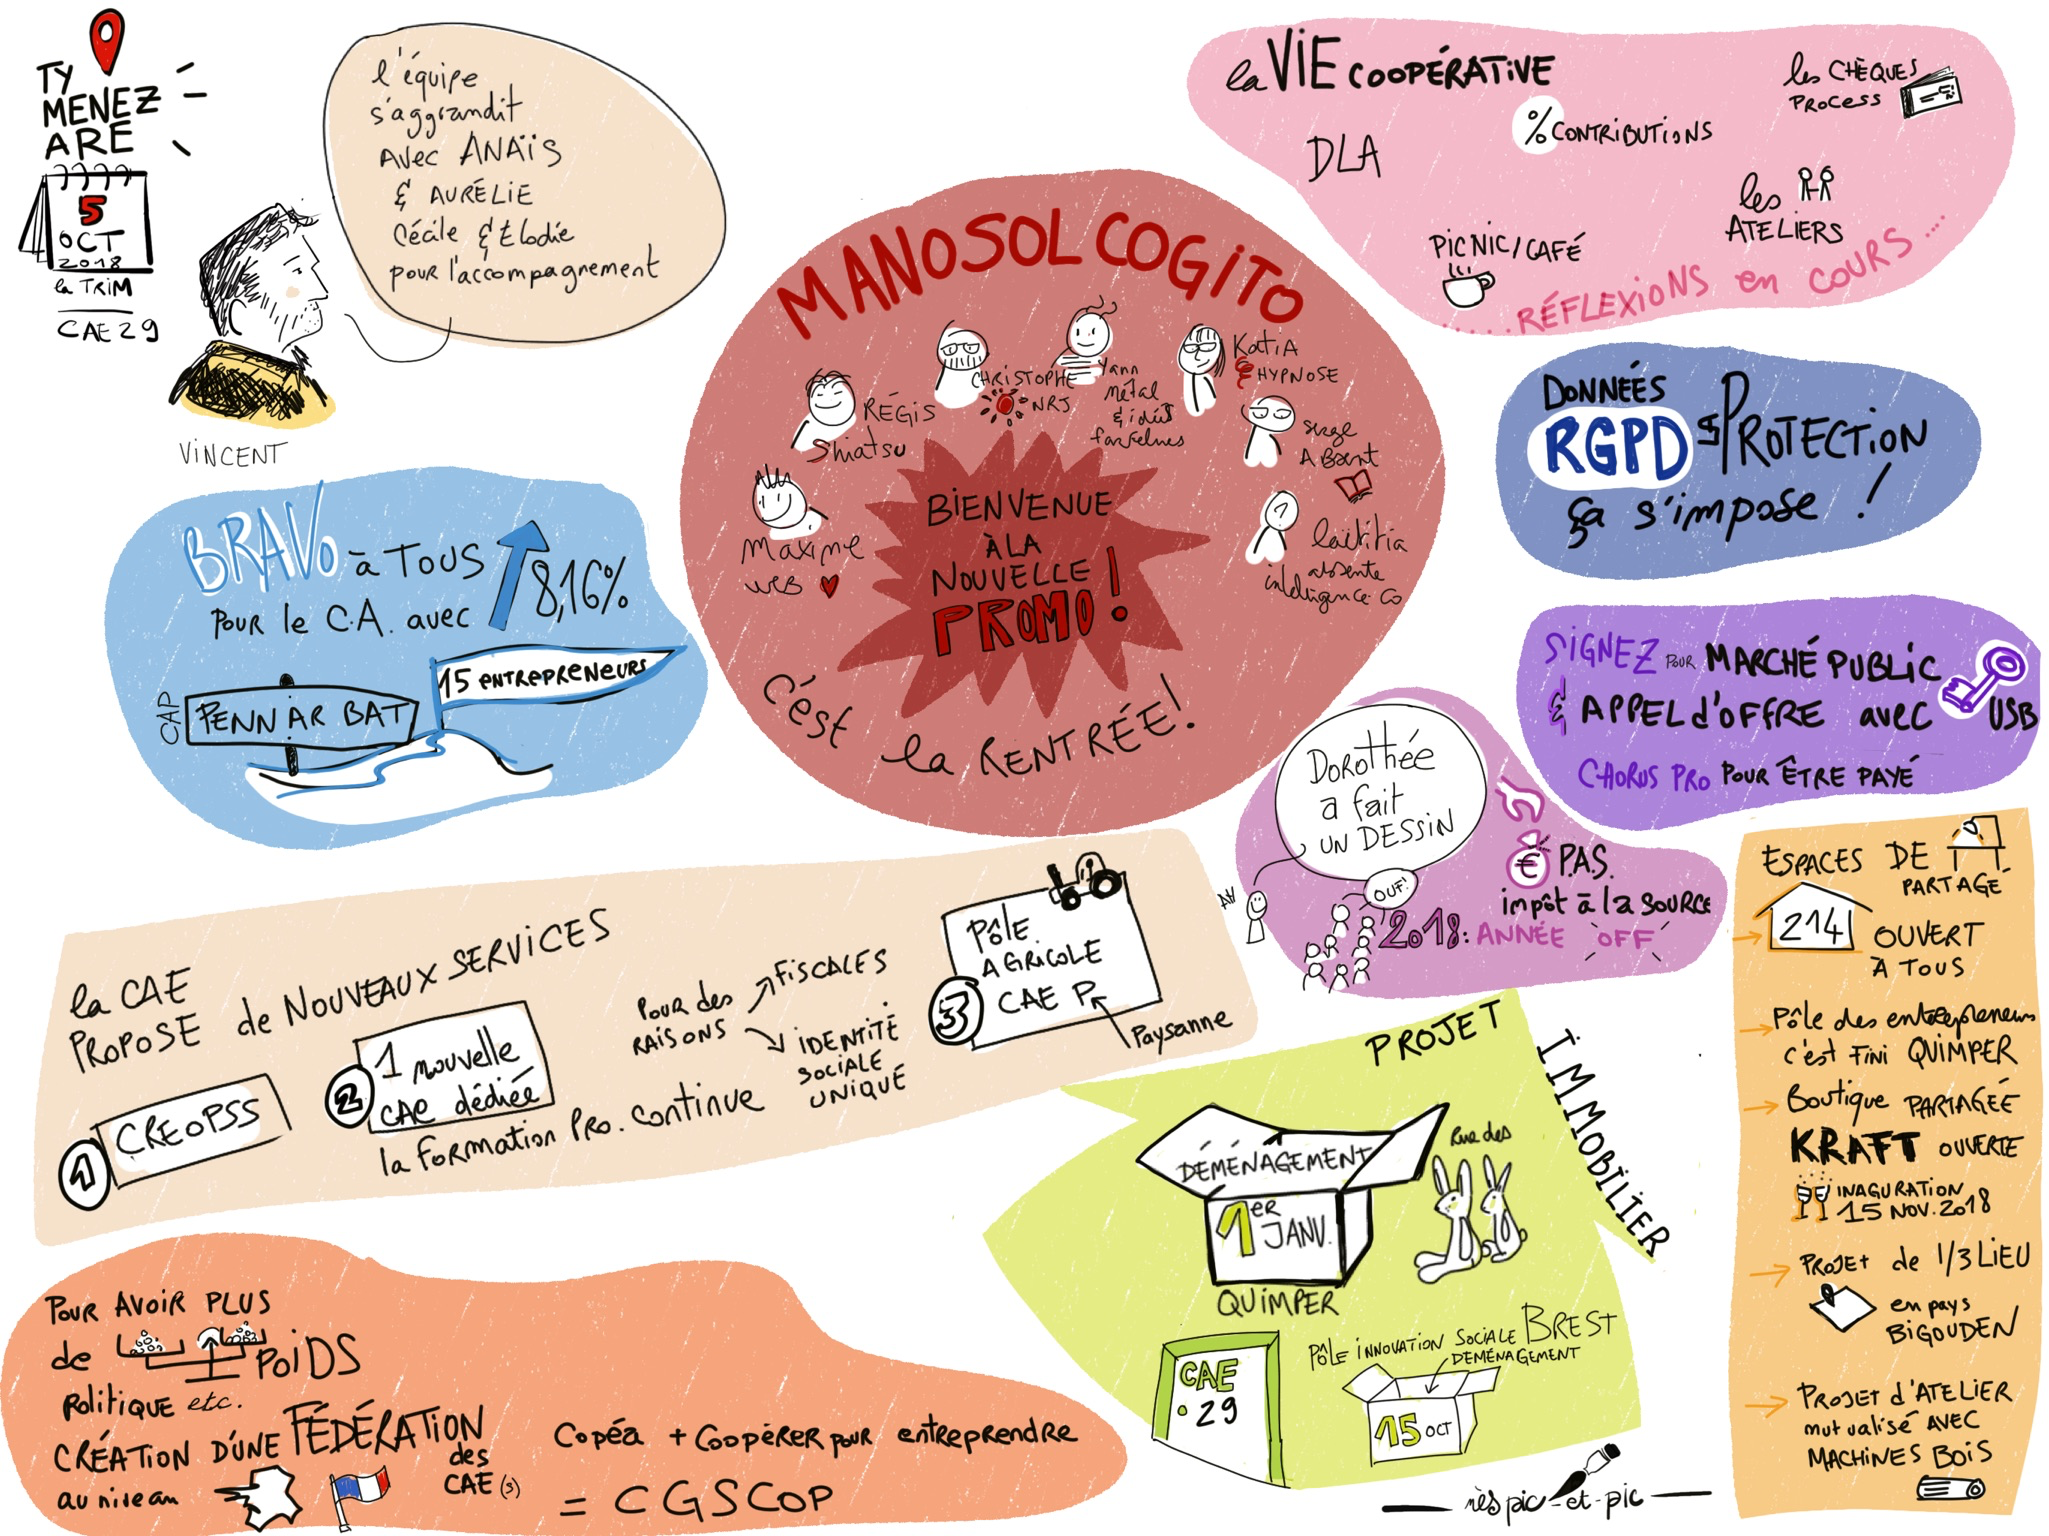 TY
MENEZ
ARE
5
OCT
2018
la TRIM
CAE 29
VINCENT
l'équipe
s'aggrandit
avec ANAÏS
& AURÉLIE
Cécile & Elodie
pour l'accompagnement
MANOSOL COGITO
RÉGIS
Shiatsu
CHRISTOPHE
NRJ
Yann
métal
& idées
farfelues
KATIA
HYPNOSE
Serge
ABSENT
Maxime
WEB
laëtitia
absente
intelligence CO
BIENVENUE
À LA
NOUVELLE
PROMO !
C'est la RENTRÉE !
la VIE COOPÉRATIVE
les CHÈQUES
PROCESS
% CONTRIBUTIONS
DLA
les
ATELIERS
PICNIC/CAFÉ
.....RÉFLEXIONS en COURS...
DONNÉES
RGPD PROTECTION
ça s'impose !
BRAVO à TOUS
POUR le C.A. avec
8,16%
15 ENTREPRENEURS
CAP
PENN AR BAT
SIGNEZ POUR MARCHÉ PUBLIC
& APPEL d'OFFRE avec USB
CHORUS PRO POUR ÊTRE PAYÉ
Dorothée
a fait
UN DESSIN
OUF!
€ P.A.S.
impôt à la source
2018: ANNÉE OFF
la CAE
PROPOSE de NOUVEAUX SERVICES
1
CREOPSS
2
1 nouvelle
CAE dédiée
la Formation Pro. continue
POUR des
RAISONS
FISCALES
IDENTITÉ
SOCIALE
UNIQUE
3
PÔLE
AGRICOLE
CAE P
Paysanne
ESPACES DE
PARTAGE
214
OUVERT
À TOUS
Pôle des entrepreneurs
c'est FINI QUIMPER
Boutique PARTAGÉE
KRAFT OUVERTE
INAGURATION
15 NOV. 2018
PROJET de 1/3 LIEU
en pays
BIGOUDEN
PROJET d'ATELIER
mutualisé AVEC
MACHINES BOIS
PROJET
IMMOBILIER
DÉMÉNAGEMENT
1ER
JANV.
QUIMPER
Rue des
PÔLE INNOVATION SOCIALE BREST
DEMÉNAGEMENT
15 OCT
CAE
• 29
POUR AVOIR PLUS
de POIDS
Politique etc.
CRÉATION D'UNE FÉDÉRATION
des
CAE(s)
au niveau
Copéa + Coopérer pour entreprendre
= CGSCOP
nès pic-et-pic